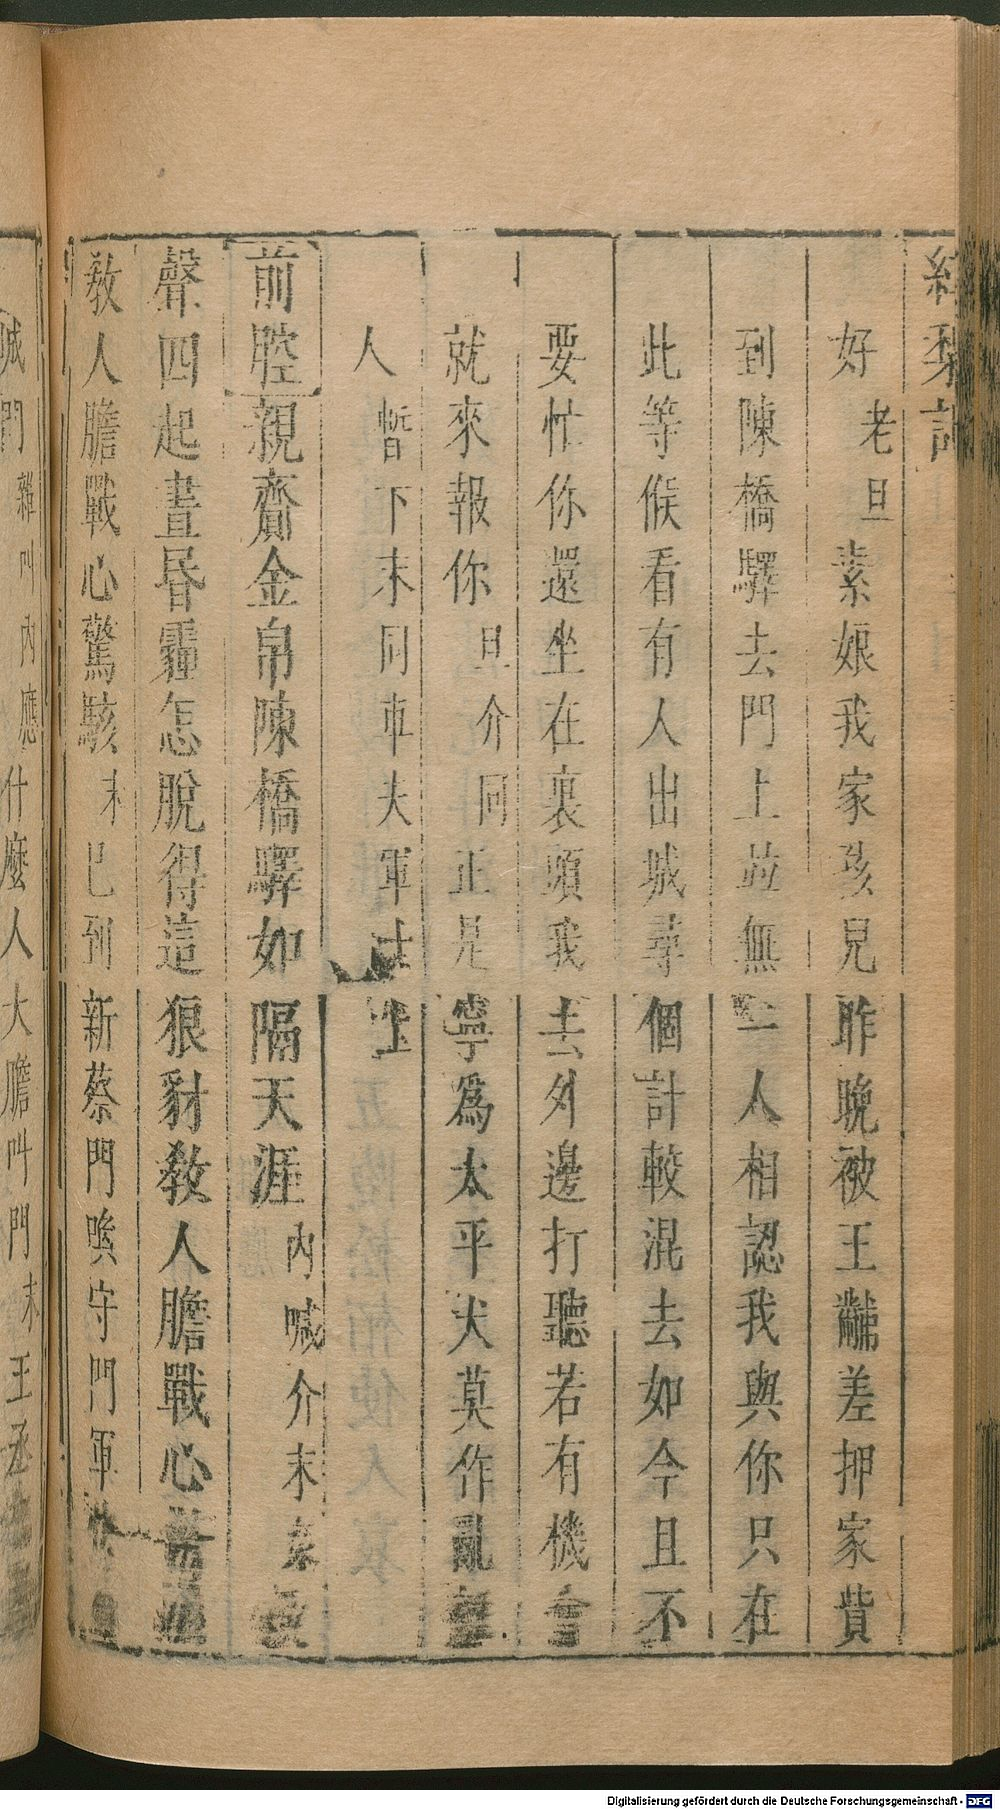 紅梨記
好老旦素娘我家孩兒昨晚被王黼差押家貲
到陳橋驛去門上並無一人相認我與你只在
此等候看有人出城尋個計較混去如今且不
要忙你還坐在裏頭我去外邊打聽若有機會
就來報你旦介同正是寧為太平犬莫作亂離
人暫下末同車夫軍士上
前腔親齎金帛陳橋驛如隔天涯內喊介末
聲四起晝昏霾怎脫得這狼豺教人膽戰心
教人膽戰心驚駭末已到新蔡門喚守門軍
城門雜叫內應什麼人大膽叫門末王丞
Digitalisierung gefördert durch die Deutsche Forschungsgemeinschaft - DFG